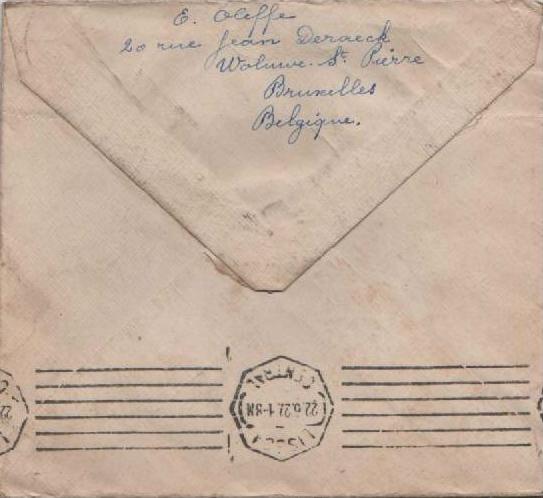 E. Oleffe
20 rue Jean Deraeck
Woluwe. St. Pierre
Bruxelles
Belgique.
CENTRAL
22.6.22.1-8N
LISBOA